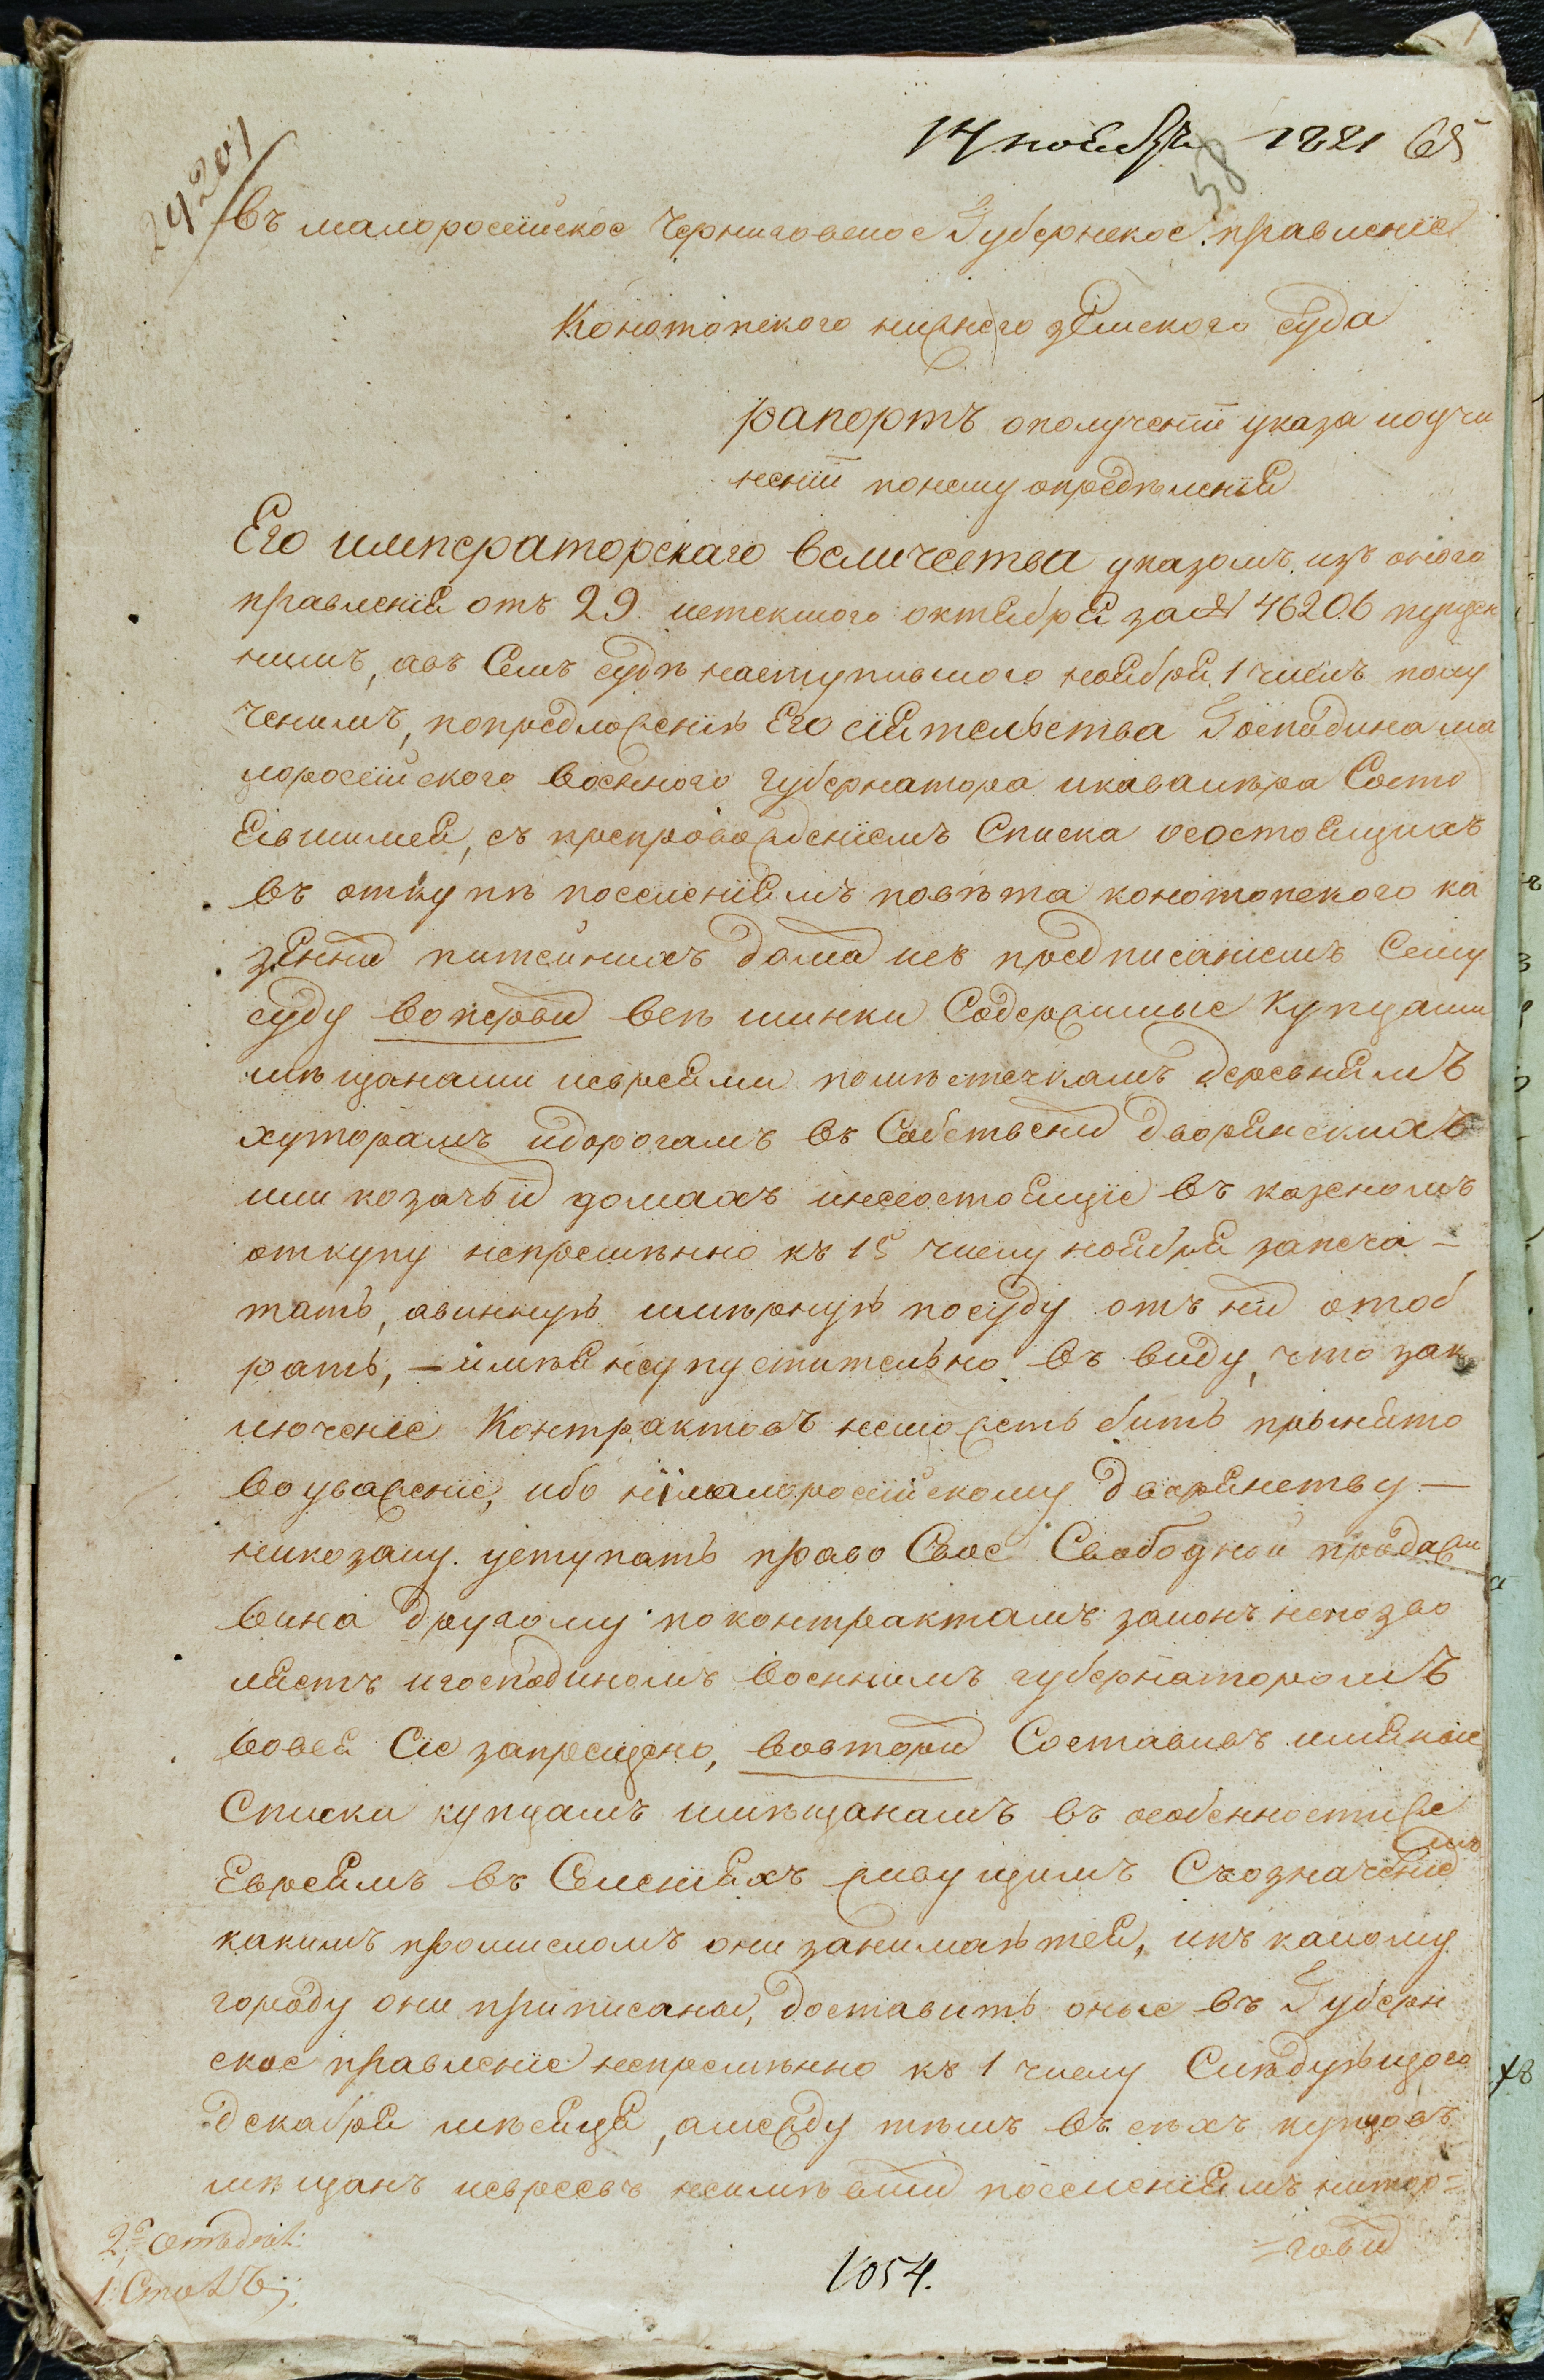 14 ноября 1821 65
58
24201
Въ малоросеійское Черниговское Губернское правленіе
Конотопского нижнего земского суда
рапортъ ополученіи указа иоучи
неніи понему опредѣленія
Его императорскаго величества указомъ изъ оного
правленія отъ 29 истекшого октября за № 46206 пущен
нимъ, авъ Семъ судѣ наступившого ноября 1 числъ полу
ченимъ, попредложенію Его сіятельства Господина ма
лоросеійского военного губернатора икавалѣра Состо
явшимся, съ препровожденіемъ Списка осостоящихъ
въ откупѣ поселеніямъ повѣта конотопского ка
зенных питейнихъ домах исъ предписаніемъ Сему
суду воперьвых всѣ шинки Содержимые купцами
мѣщанами иевреями помѣстечкамъ деревнямъ
хуторамъ идорогамъ въ Собственых дворянскихъ
или козачьих домахъ инесостоящіе въ казеномъ
откупу непремѣнно къ 15 числу ноября запеча-
тать, авинную имѣрную посуду отъ них отоб
рать, - имѣя неупустительно въ виду, что зак
люченіе Контрактовъ неможетъ бить принято
воуваженіе, ибо ні малоросеійскому дворянству -
никозаку уступать право Свое Свободной продажи
вина другому поконтрактамъ законъ непозво
ляетъ игосподиномъ военнимъ губернаторомъ
вовся Сие запрещено, вовторых Составивъ имяные
Списки купцамъ имѣщанамъ въ особенностиже
Евреямъ въ Селеніяхъ живущимъ Съозначение
мъ
какимъ промисломъ они занимаются, икъ какому
городу они приписаны, доставить оные въ Губерн
ское правленіе непремѣнно къ 1 числу Слѣдующого
декабря мѣсяца, амежду тѣмъ въ сѣхъ купцовъ
мѣщанъ иевреевъ неимѣвших поселеніямъ нитор=
=говых
2е отъдѣл:
1. Столъ
1054.